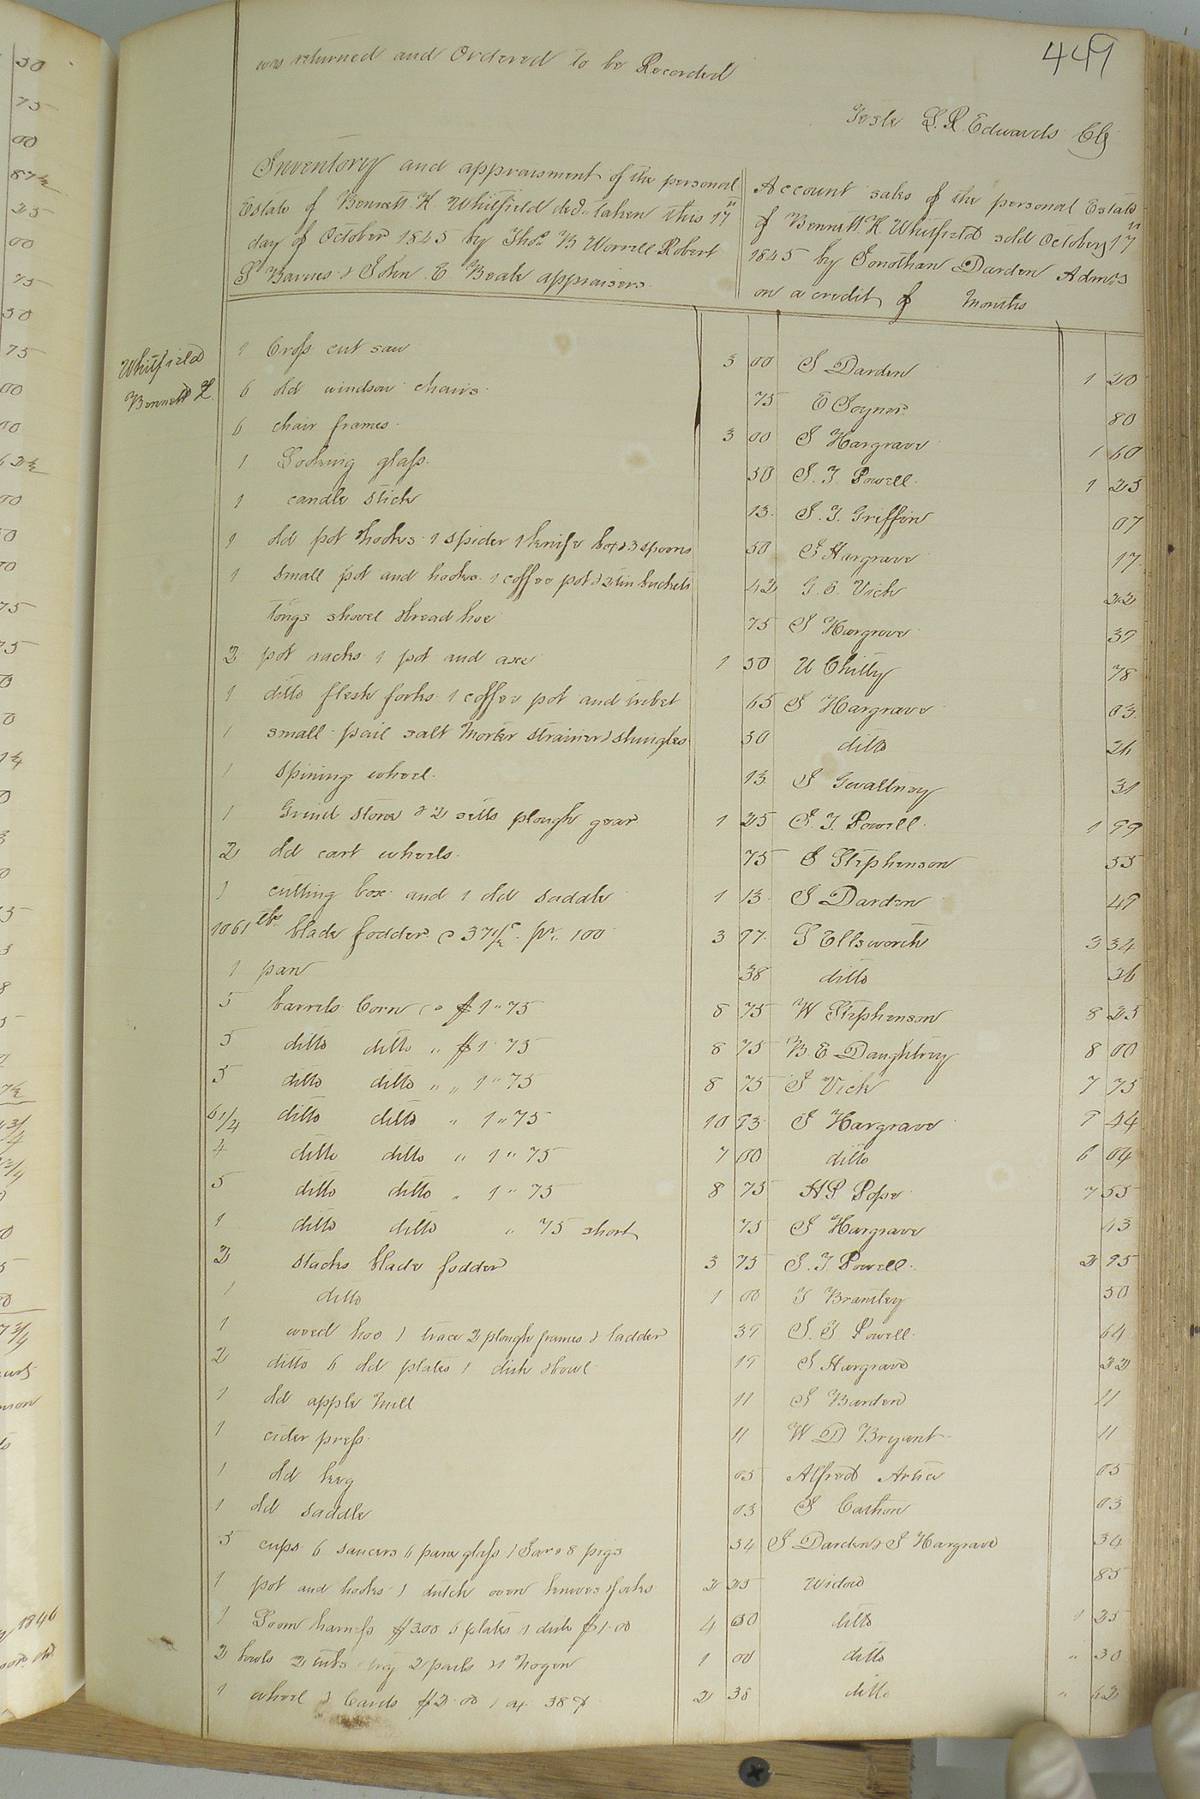 449
was returned and Ordered to be Recorded
Teste L. R. Edwards Clk
Inventory and appraisment of the personal
Estate of Bennett H. Whitfield decd. taken this 17"
day of October 1845 by Thos. B Worrell Robert
S Barnes & John E Beale appraisers
Account sales of the personal Estate
of Bennett H Whitfield sold October 17"
1845 by Jonathan Darden Admr
on a credit of months
Whitfield
Bennett H.
1 Cross cut saw 3 00 J Darden 1 20
6 old windsor chairs 75 E Joyner 80
6 chair frames 3 00 S Hargrave 1 60
1 Looking glass 50 S. J. Powell 1 25
1 candle stick 13 S. J. Griffin 07
1 old pot hooks 1 spider 1 knife box & 3 spoons 50 S Hargrave 17
1 small pot and hooks 1 coffee pot & 2 tin buckets 42 G. E. Vick 22
tongs shovel & bread hoe 75 S Hargrave 39
2 pot racks 1 pot and axe 1 50 U Chitty 78
1 ditto flesh forks 1 coffee pot and tribet 65 S Hargrave 03
1 small pail salt Morter strainer & shingles 50 ditto 26
1 spining wheel 13 S Gwaltney 31
1 Grind stone & 2 setts plough gear 1 25 S. J. Powell 1 99
2 old cart wheels 75 S Stephenson 55
1 cutting box and 1 old saddle 1 13 J Darden 49
1061 lbs. blade fodder @ 37½c pr. 100 3 97 J Ellsworth 3 34
1 pan 38 ditto 36
5 barrels Corn @ $1"75 8 75 W Stephenson 8 25
5 ditto ditto " $1"75 8 75 B. E Daughtrey 8 00
5 ditto ditto " " 1"75 8 75 J Vick 7 75
6¼ ditto ditto " 1"75 10 93 S Hargrave 9 44
4 ditto ditto " 1"75 7 00 ditto 6 04
5 ditto ditto " 1"75 8 75 H P Pope 7 55
1 ditto ditto " 75 short 75 S Hargrave 43
2 stacks blade fodder 3 75 S. J Powell 2 95
1 ditto 1 00 J Brantley 50
1 weed hoe 1 trace 2 plough frames & ladder 39 S. J Powell 64
2 ditto 6 old plates 1 dish & bowl 19 S Hargrave 22
1 old apple Mill 11 J Barden 11
1 cider press 11 W D Bryant 11
1 old keg 05 Alfred Artis 05
1 old saddle 03 J Cathon 03
5 cups 6 saucers 6 pane glass 1 Sow & 8 pigs 54 J Darden & S Hargrave 34
1 pot and hooks 1 dutch oven knives & forks 2 25 Widow 85
1 Loom harness $3.00 5 plates 1 dish $1.00 4 00 ditto 1 25
2 bowls 2 tubs tray 2 pails & 1 Nogen 1 00 ditto " 30
1 wheel & Cards $2.00 1 ax 38 2 38 ditto " 62